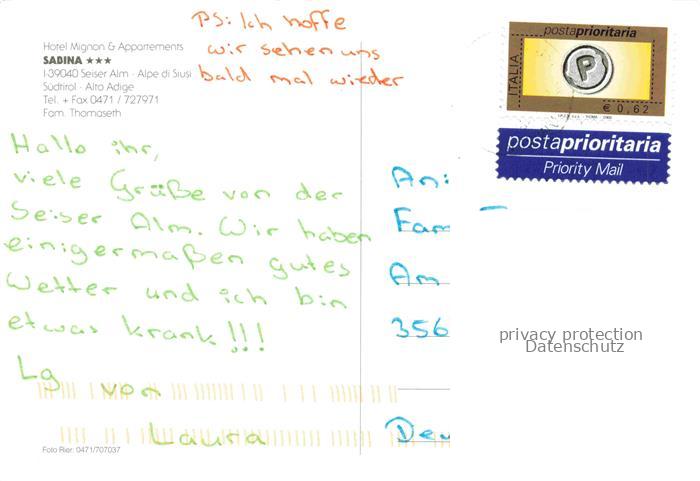 PS: Ich hoffe
wir sehen uns
bald mal wieder
Hotel Mignon & Appartements
SABINA ★★★
I-39040 Seiser Alm · Alpe di Siusi
Südtirol · Alto Adige
Tel. + Fax 0471 / 727971
Fam. Thomaseth
Hallo ihr,
viele Grüße von der
Seiser Alm. Wir haben
einigermaßen gutes
Wetter und ich bin
etwas krank!!!
Lg
von
Laura
Foto Rier: 0471/707037
postaprioritaria
ITALIA
P
€ 0,62
postaprioritaria
Priority Mail
An:
Fam
Am
356
privacy protection
Datenschutz